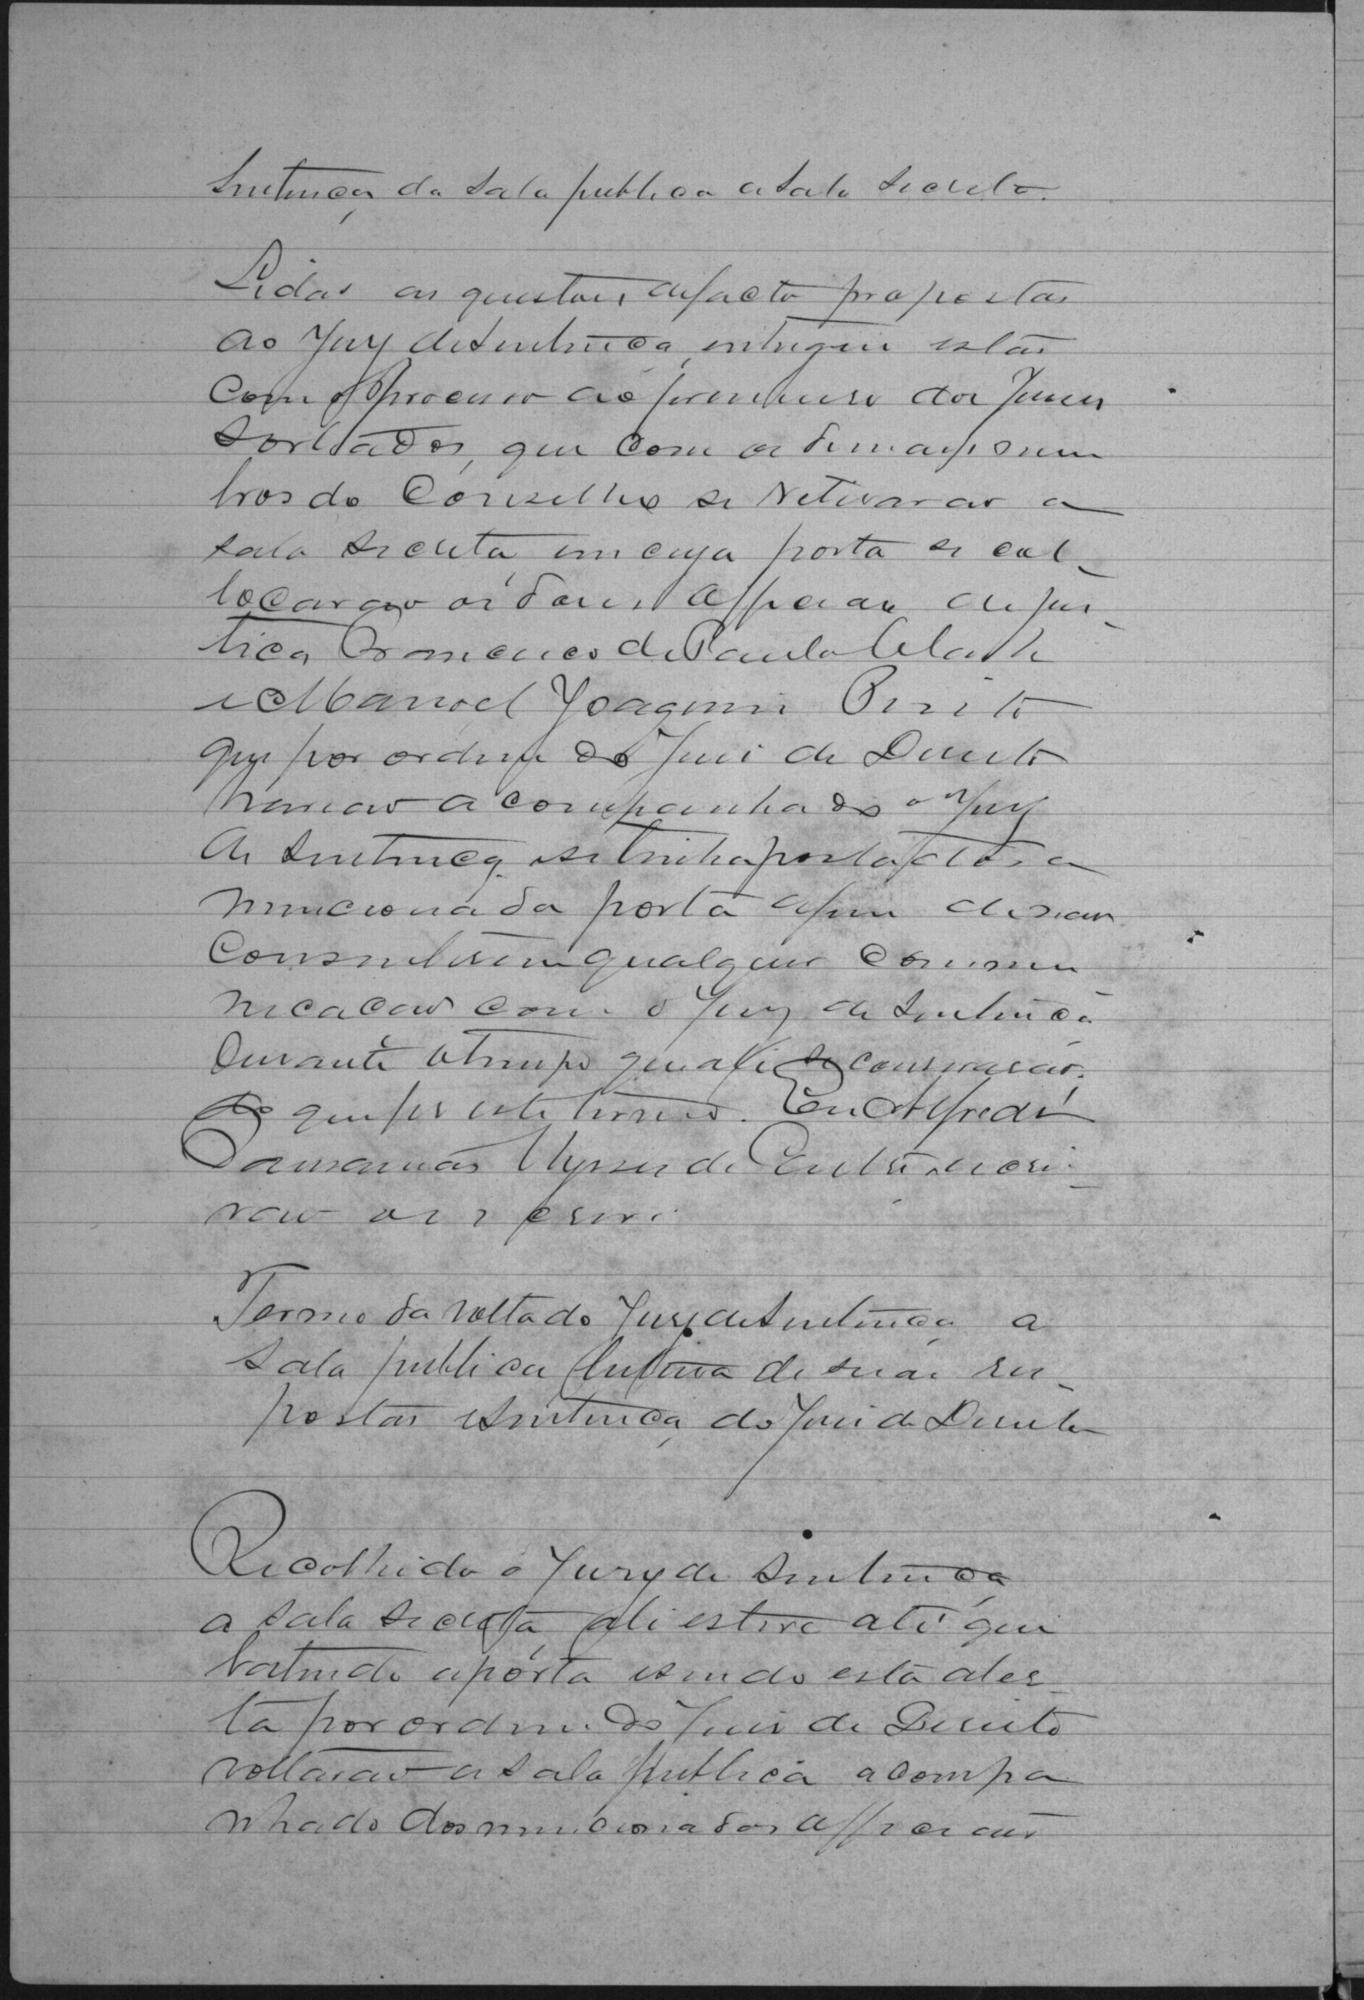 Sentença da Sala publica a Sala Secreta.
Lidas as questoes de facto propostas
ao Jury de Sentença, entregue estas
com o processo ao primeiro dos Juises
Sorteados, que com os demais mem
bros do Conselho se retirarao a
sala secreta, em cuja porta se col_
locarao os dous officiaes de jus_
tiça Francisco de Paula
e Manoel Joaquim Pinto
que por ordem do Juis de Direito
haviao acompanhado o Jury
de Sentença, e se tinha postado a
mencionada porta afim de nao
consentirem qualquer commu
nicacao com o Jury de Sentença
durante o tempo que ali se conservarao,
do que fis este termo. Eu Alfredo
Damasmas Ulysses de Castro escri_
vao os escrevi
Termo da volta do Jury de Sentença a
Sala publica leitura de suas res_
postas e Sentença do Juis de Direito
Recolhido o Jury de Sentença
a Sala Secreta, ali esteve até que
batendo a porta e sendo esta aber_
ta por ordem do Juis de Direito
voltarao a Sala publica acompa
nhado dos mencionados officiaes